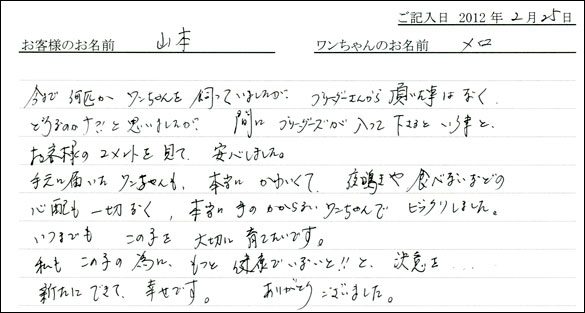 ご記入日 2012年2月25日
お客様のお名前 山本 ワンちゃんのお名前 メロ
今まで何匹か ワンちゃんを 飼っていましたが、ブリーダーさんから 頂いた事はなく
どうなのか?!と思いましたが 間に ブリーダーズが 入って 下さると いう事と、
お客様のコメントを見て、安心しました。
手元に届いたワンちゃんも、本当に かわいくて、夜鳴きや 食べないなどの
心配も 一切なく、本当に 手の かからない ワンちゃんで ビックリしました。
いつまでも この子を 大切に 育てたいです。
私も この子の 為に、もっと 健康でいないと!!と、決意を....
新たに できて、幸せです。 ありがとう ございました。